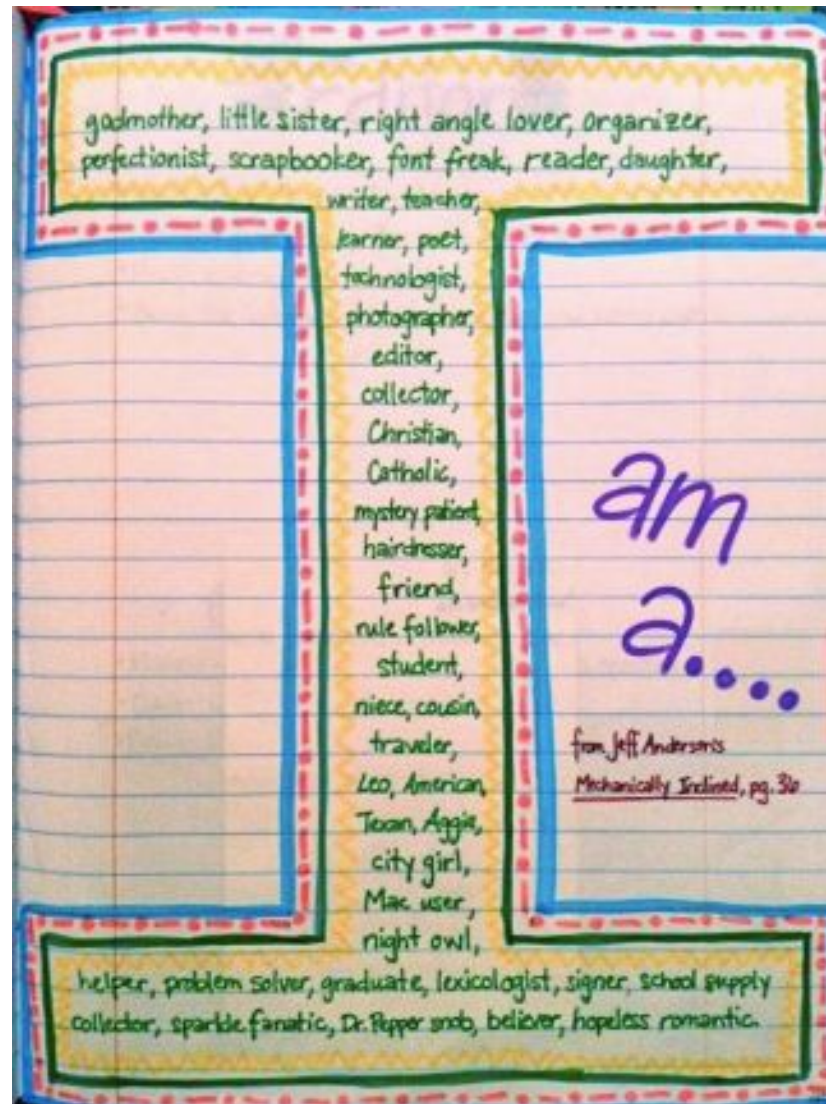 godmother, little sister, right angle lover, organizer,
perfectionist, scrapbooker, font freak, reader, daughter,
writer, teacher,
learner, poet,
technologist,
photographer,
editor,
collector,
Christian,
Catholic,
mystery patient,
hairdresser,
friend,
rule follower,
student,
niece, cousin,
traveler,
Leo, American,
Texan, Aggie,
city girl,
Mac user,
night owl,
helper, problem solver, graduate, lexicologist, signer, school supply
collector, sparkle fanatic, Dr. Pepper snob, believer, hopeless romantic.
am
a....
from Jeff Anderson's
Mechanically Inclined, pg. 36